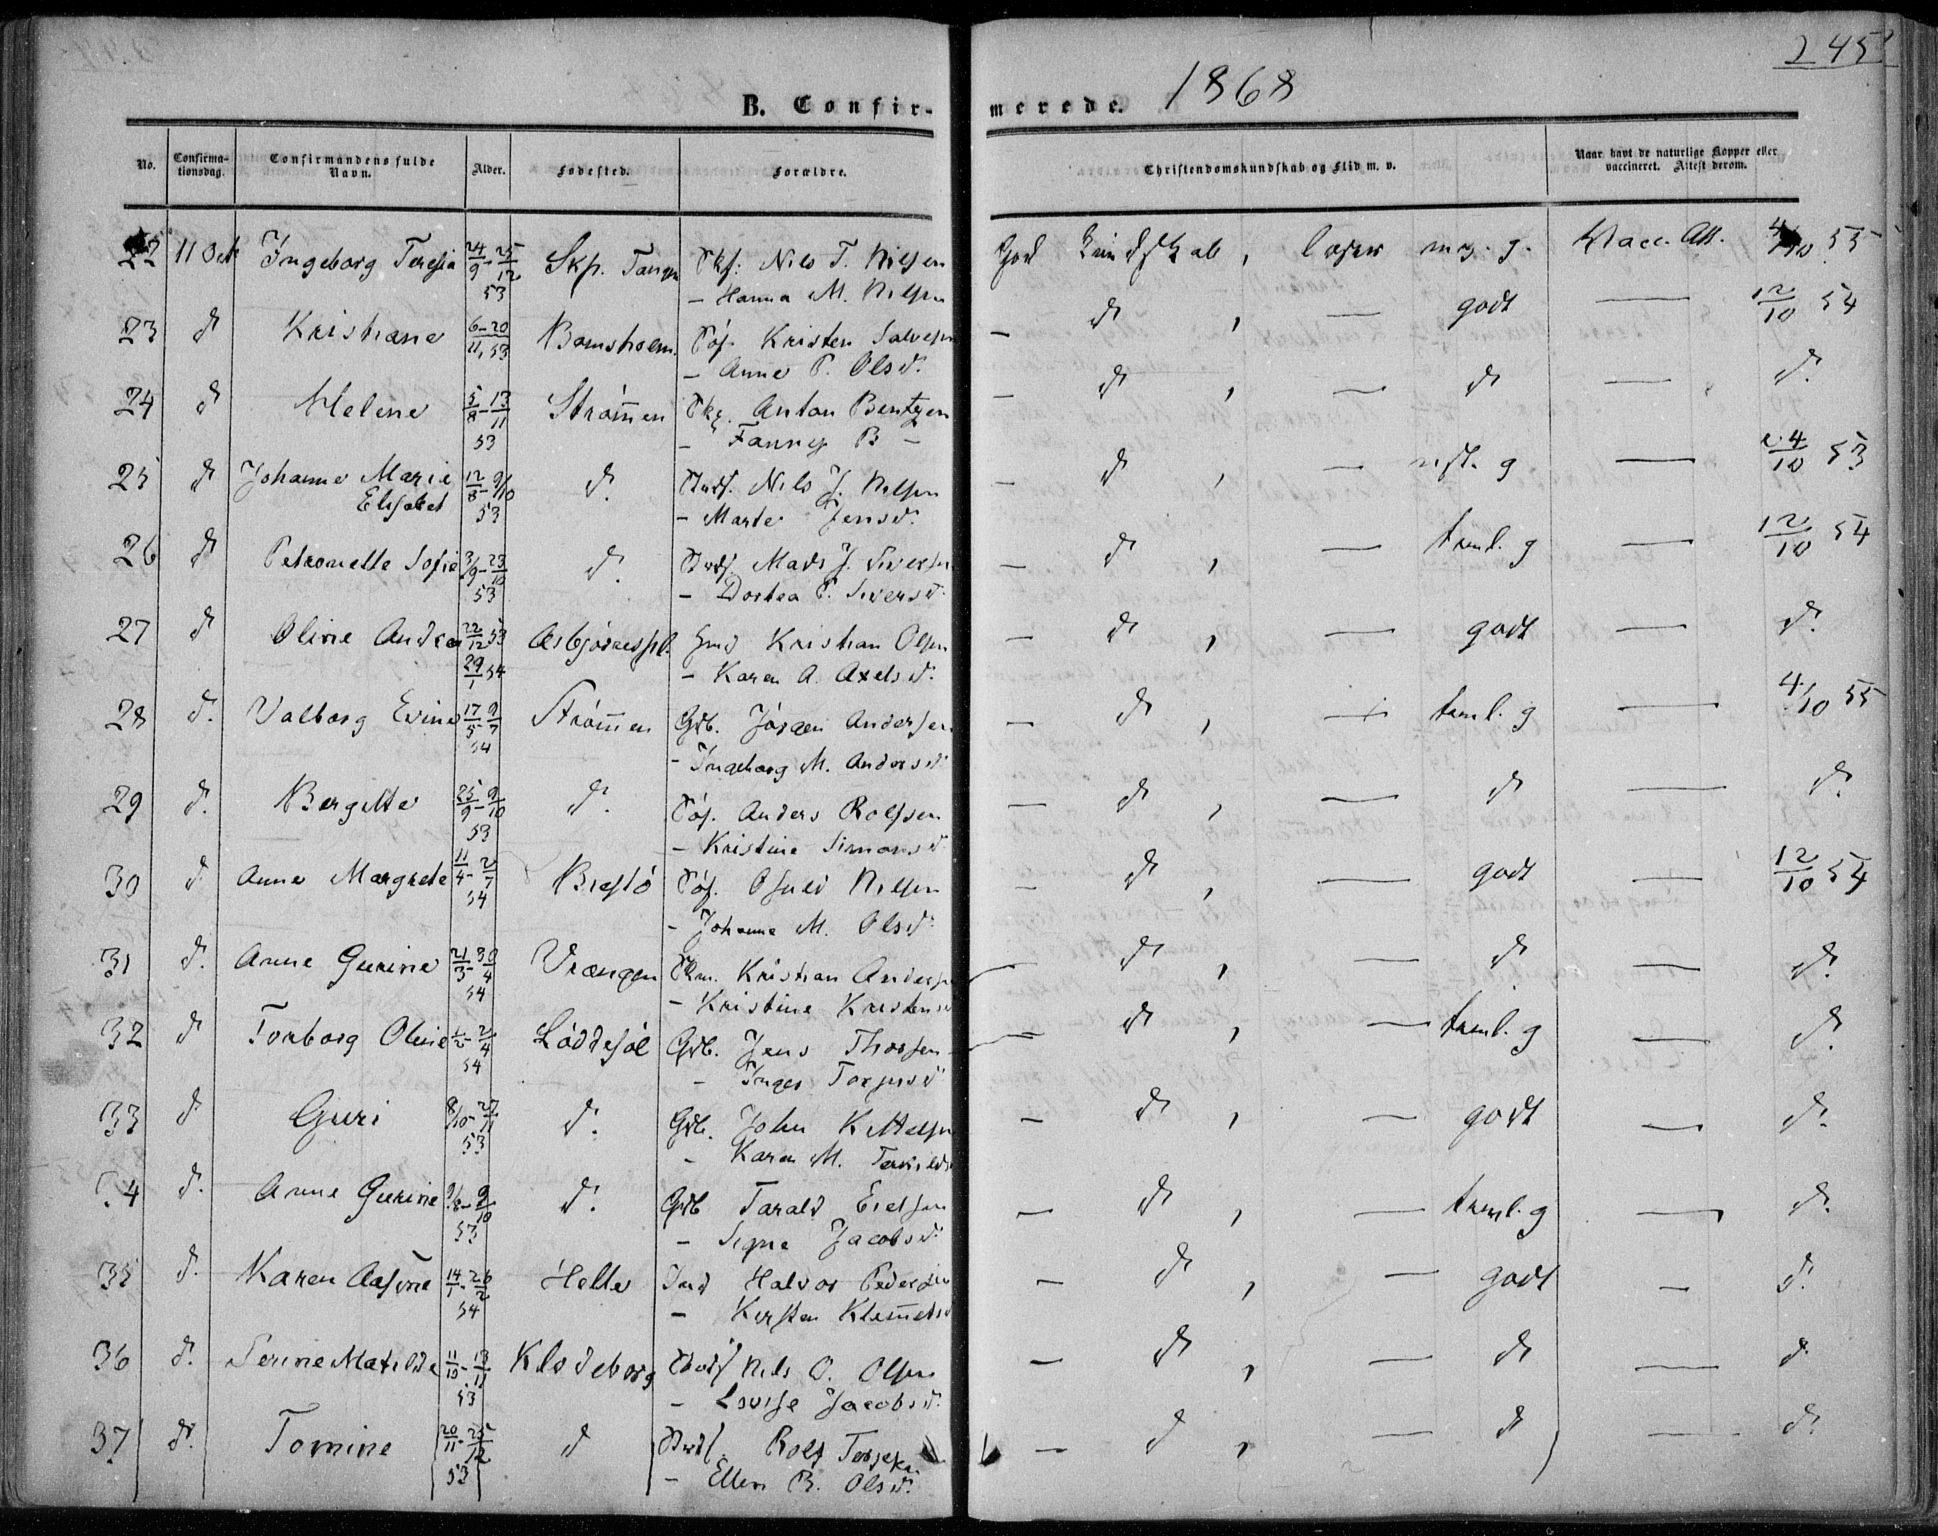 245
1868
B. Confir- merede.
No. Confirma-tionsdag. Confirmandens fulde Navn. Alder. Fødested. Forældre. Christendomskundskab og Flid m. v. Naar havt de naturlige Kopper eller vaccineret. Attest derom.
22 11 Oct Ingeborg Teresia 24/9-25/12 53 Skp. Tangen Nils T. Nilsen God Kundskab, læser mg. g. Vacc. Att. 4/10 55
- Hanna M. Nilsen
23 d Kristiane 6-20/11, 53 Bomsholm Kristen Salvesen - d, — godt — 12/10 54
- Anne P. Olsd.
24 d Helene 5/8-13/11 53 Strømmen Anton Bentzen - d, — d — d.
- Fanny B -
25 d Johanne Marie Elisabet 12/8-9/10 53 d. Nils J. Nilsen - d, — g — 24/10 53
- Marte Jensd.
26 d Petronelle Sofie 3/9-23/10 53 d. Mads J. Siversen - d, — teml. g — 12/10 54
- Dortea P. Siversd.
27 d Oline Andrea 22/12 53 29/1 54 Kristian Olsen - d, — godt — d.
- Karen A. Axelsd.
28 d. Valborg Evine 17/5-9/7 54 Strømmen Gdb. Jørgen Andersen - d, — teml. g — 4/10 55
- Ingeborg M. Andersd
29 d. Bergitte 25/9-9/10 53 d. Anders Rolfsen - d, — d — d.
- Kristine Simonsd
30 d. Anne Margrete 11/4-2/7 54 Osuld Nilsen - d, — godt — 12/10 54
- Johanne M. Olsd.
31 d. Anne Gurine 21/3-30/4 54 Vrængen Kristian Andersen - d, — d — d.
- Kristine Kristensd
32 d Torborg Oline 2/4 54 Løddesøl Gdb. Jens Thorsen - d, — teml. g — d.
- Inger Torjusd
33 d Guri 8/10-27/11 53 d. Gdb. John Kittelsen - d, — godt — d.
- Karen M.
34 d. Anne Gurine 9/10 53 d. Gdb Tarald - d, — teml. g — d.
- Signe Jacobsd.
35 d. Karen Aasine 14/1-26/2 54 Helle Halvor Pedersen - d, — godt — d.
- Kirsten Klemmetsd
36 d. Serine Matilde 11/10-13/11 53 Klodeborg Nils O. Olsen - d, — d — d
- Lovise Jacobsd.
37 d. Tomine 20/11-25/12 53 d Rolf - d, — d — d.
- Ellen B. Olsd.